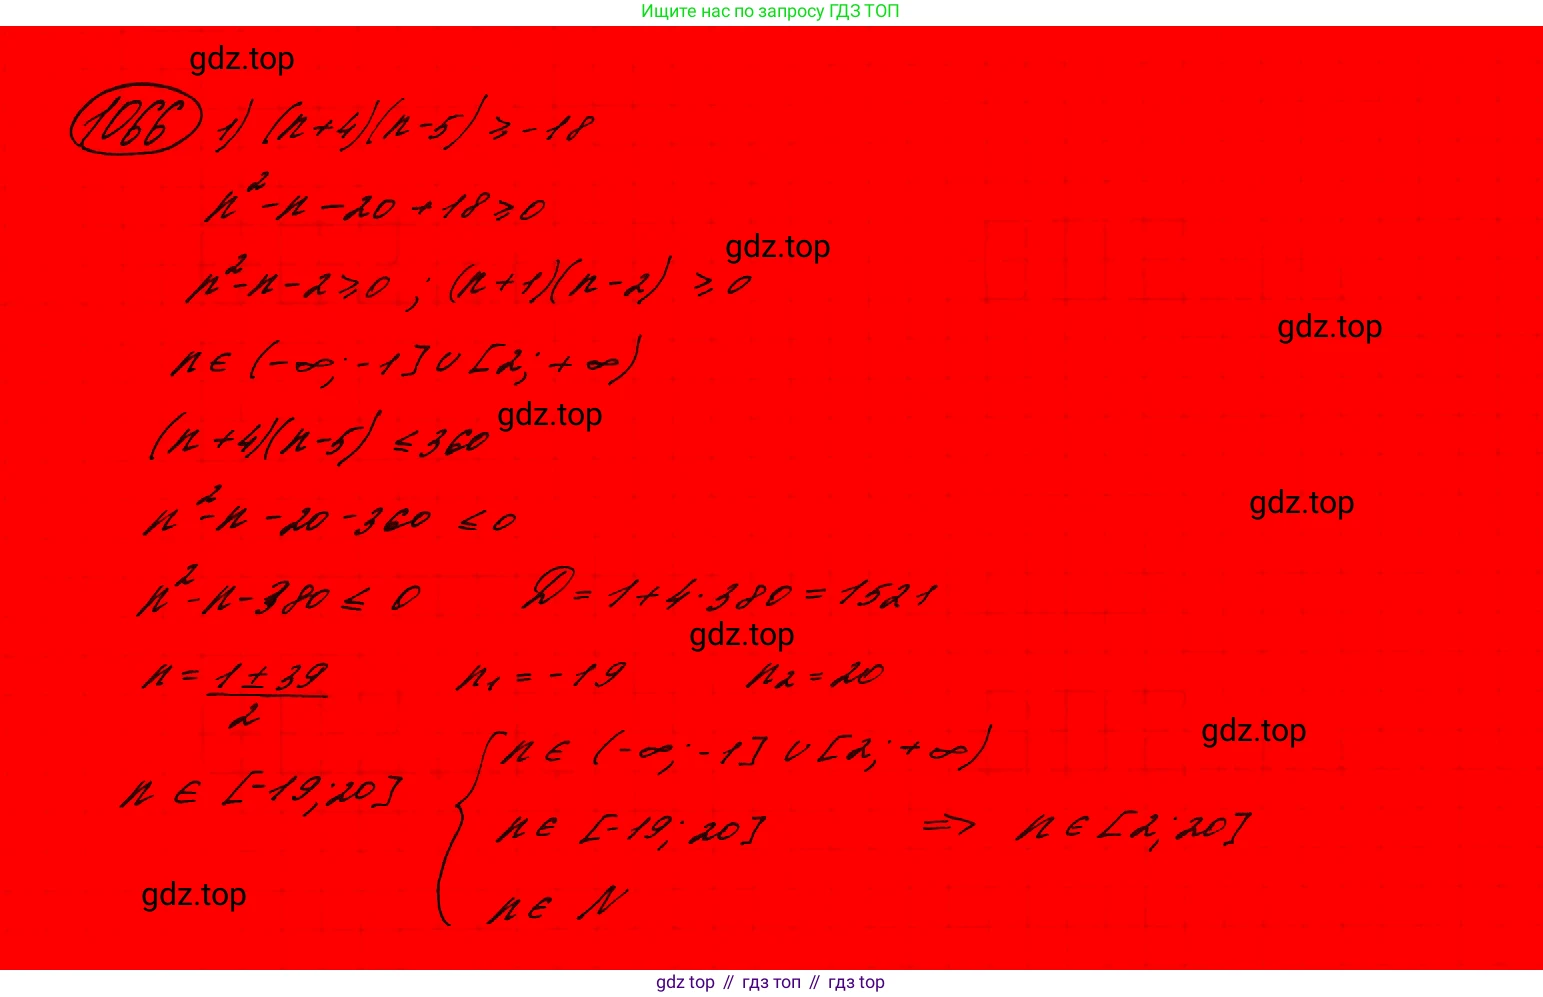 Ищите нас по запросу ГДЗ ТОП
gdz.top
1066 1) (n+4)(n-5) ≥ -18
n² - n - 20 + 18 ≥ 0
gdz.top
n² - n - 2 ≥ 0 ; (n+1)(n-2) ≥ 0
gdz.top
n ∈ (-∞; -1] ∪ [2; +∞)
gdz.top
(n+4)(n-5) ≤ 360
gdz.top
n² - n - 20 - 360 ≤ 0
n² - n - 380 ≤ 0 D = 1 + 4 · 380 = 1521
gdz.top
n = (1 ± 39)/2 n₁ = -19 n₂ = 20
gdz.top
n ∈ [-19; 20] { n ∈ (-∞; -1] ∪ [2; +∞)
n ∈ [-19; 20] => n ∈ [2; 20]
gdz.top
n ∈ N
gdz top // гдз топ // gdz top